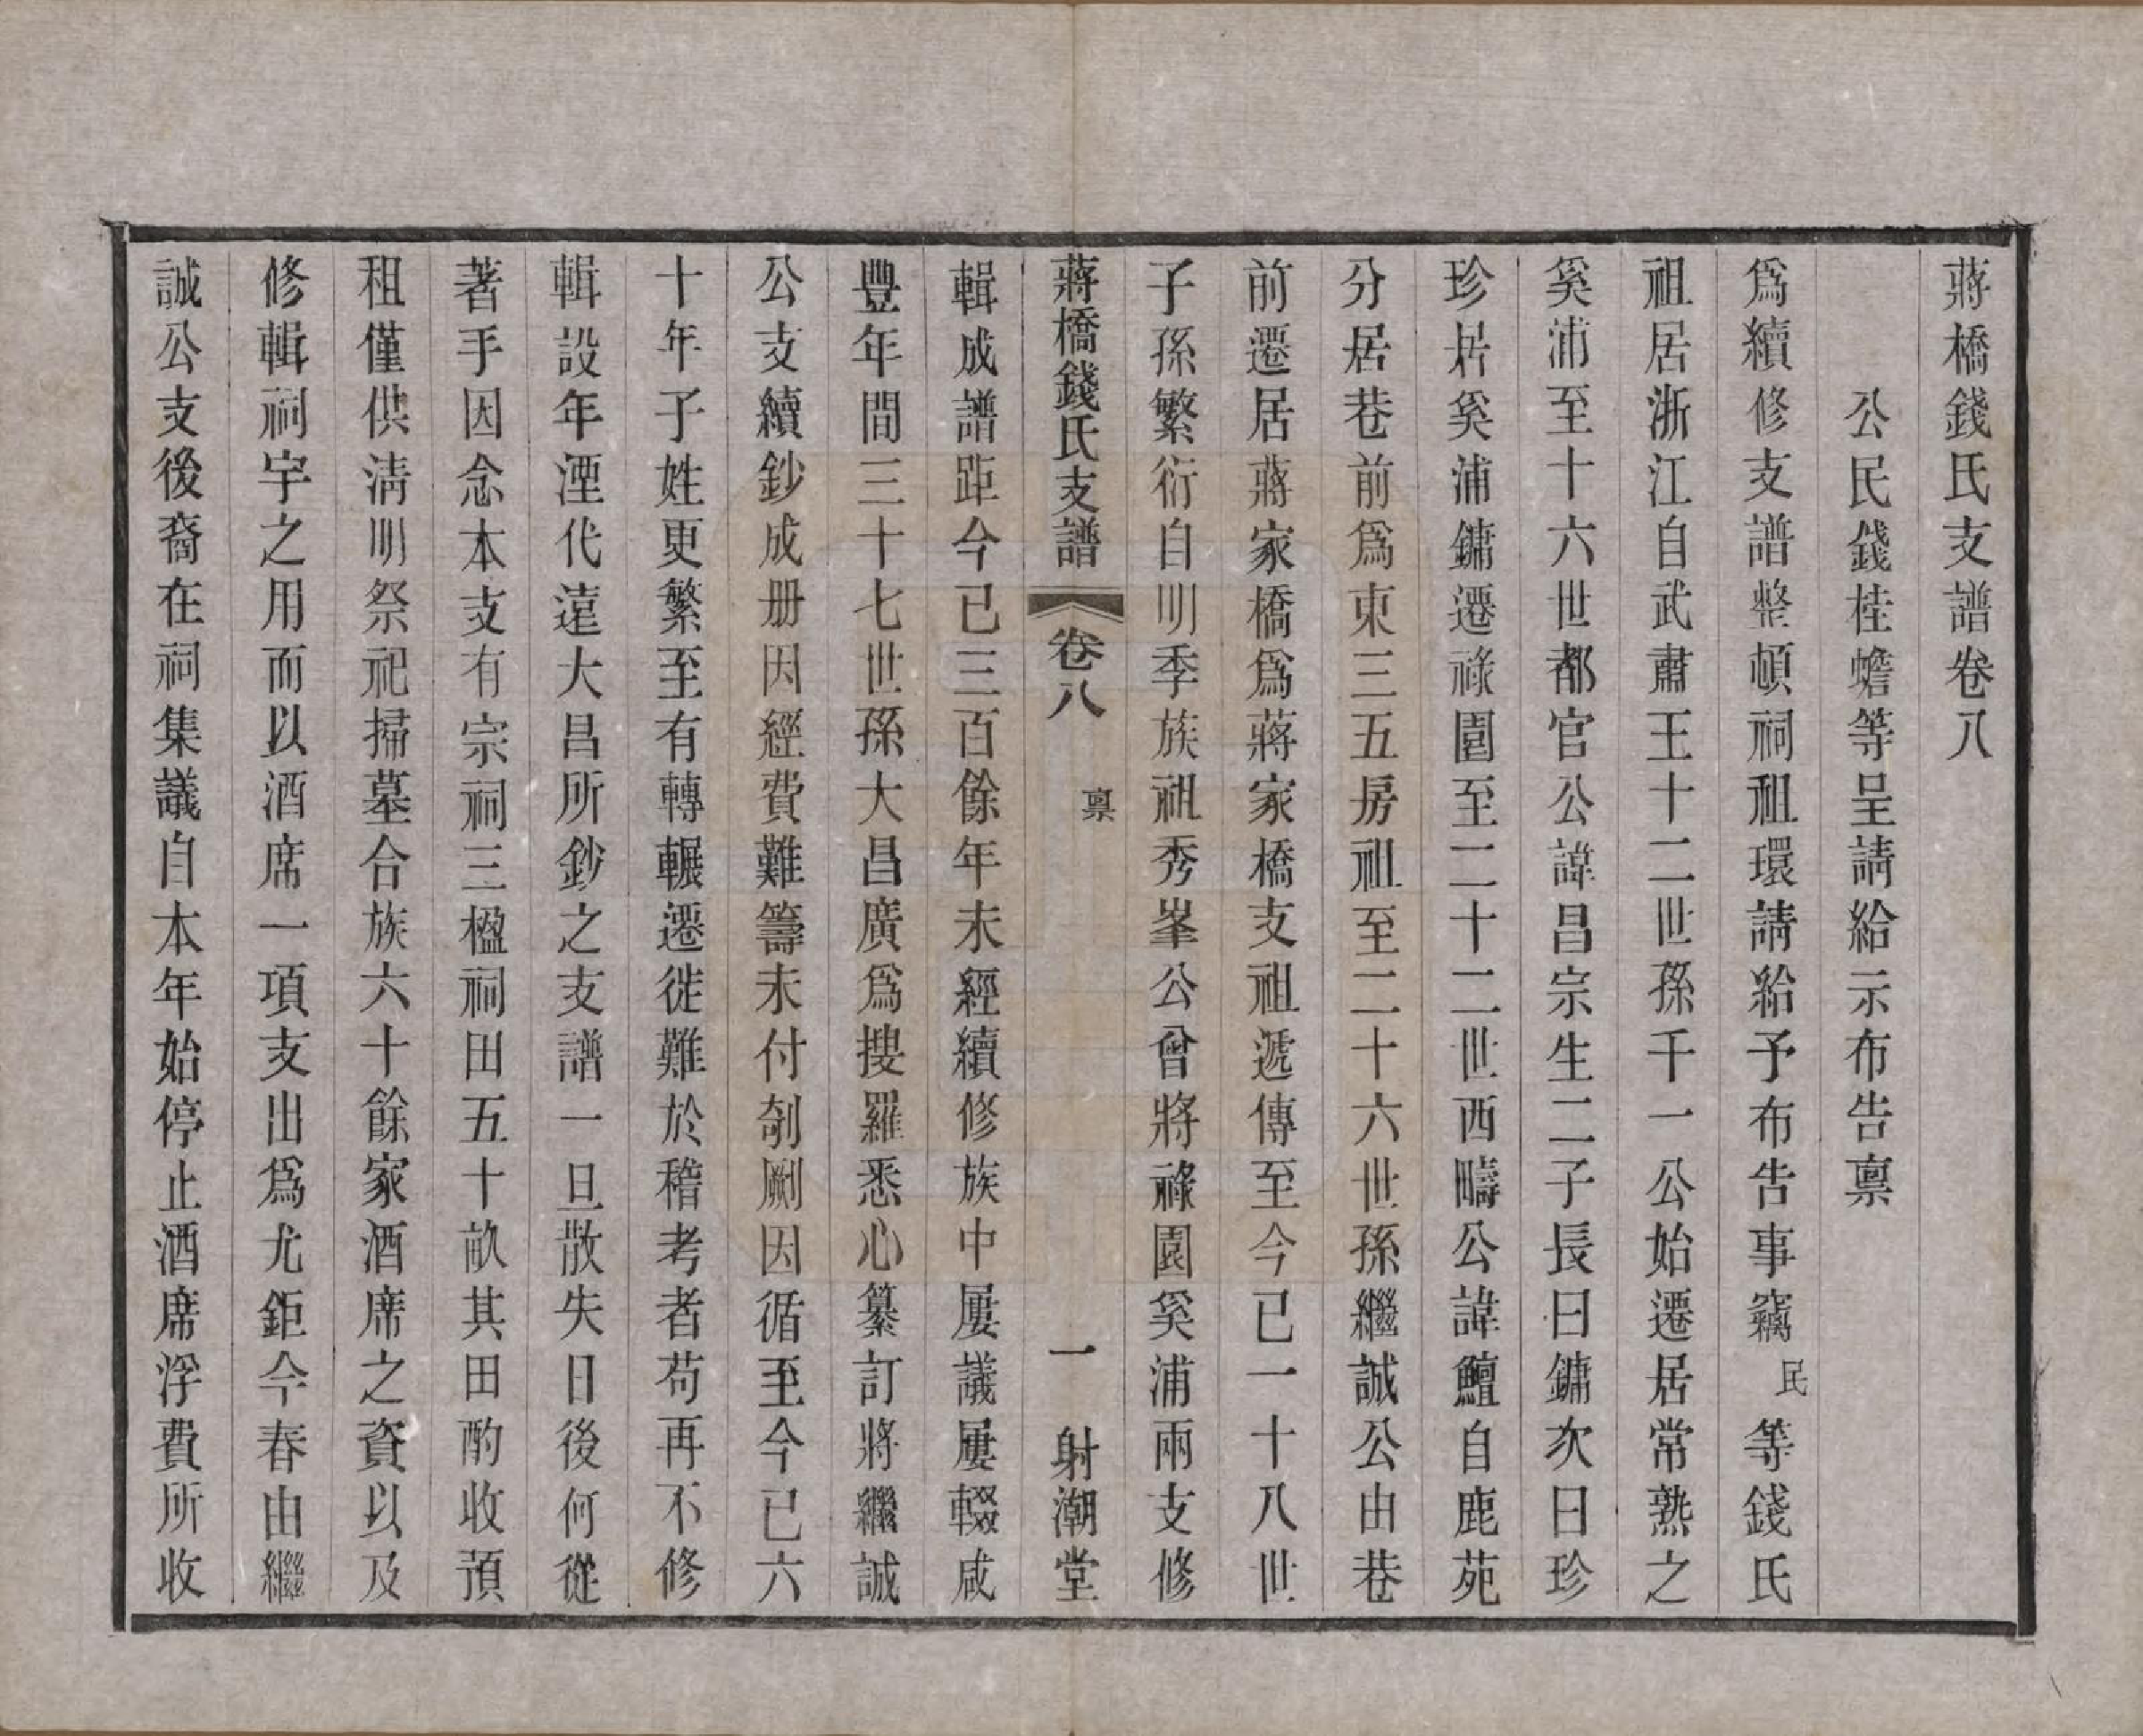 蔣橋錢氏支譜卷八
公民錢桂蟾等呈請給示布告禀
爲續修支譜整頓祠祖環請給予布告事竊民等錢氏
祖居浙江自武肅王十二世孫千一公始遷居常熟之
奚浦至十六世都官公諱昌宗生二子長曰鏞次曰珍
珍居奚浦鏞遷祿園至二十二世西疇公諱鱣自鹿苑
分居巷前爲東三五房祖至二十六世孫繼誠公由巷
前遷居蔣家橋爲蔣家橋支祖遞傳至今已一十八世
子孫繁衍自明季族祖秀峯公曾將祿園奚浦兩支修
蔣橋錢氏支譜 卷八 禀 一 射潮堂
輯成譜距今已三百餘年未經續修族中屢議屢輟咸
豐年間三十七世孫大昌廣爲搜羅悉心纂訂將繼誠
公支續鈔成册因經費難籌未付剞劂因循至今已六
十年子姓更繁至有轉輾遷徙難於稽考者苟再不修
輯設年湮代遠大昌所鈔之支譜一旦散失日後何從
著手因念本支有宗祠三楹祠田五十畝其田酌收預
租僅供淸明祭祀掃墓合族六十餘家酒席之資以及
修輯祠宇之用而以酒席一項支出爲尤鉅今春由繼
誠公支後裔在祠集議自本年始停止酒席浮費所收